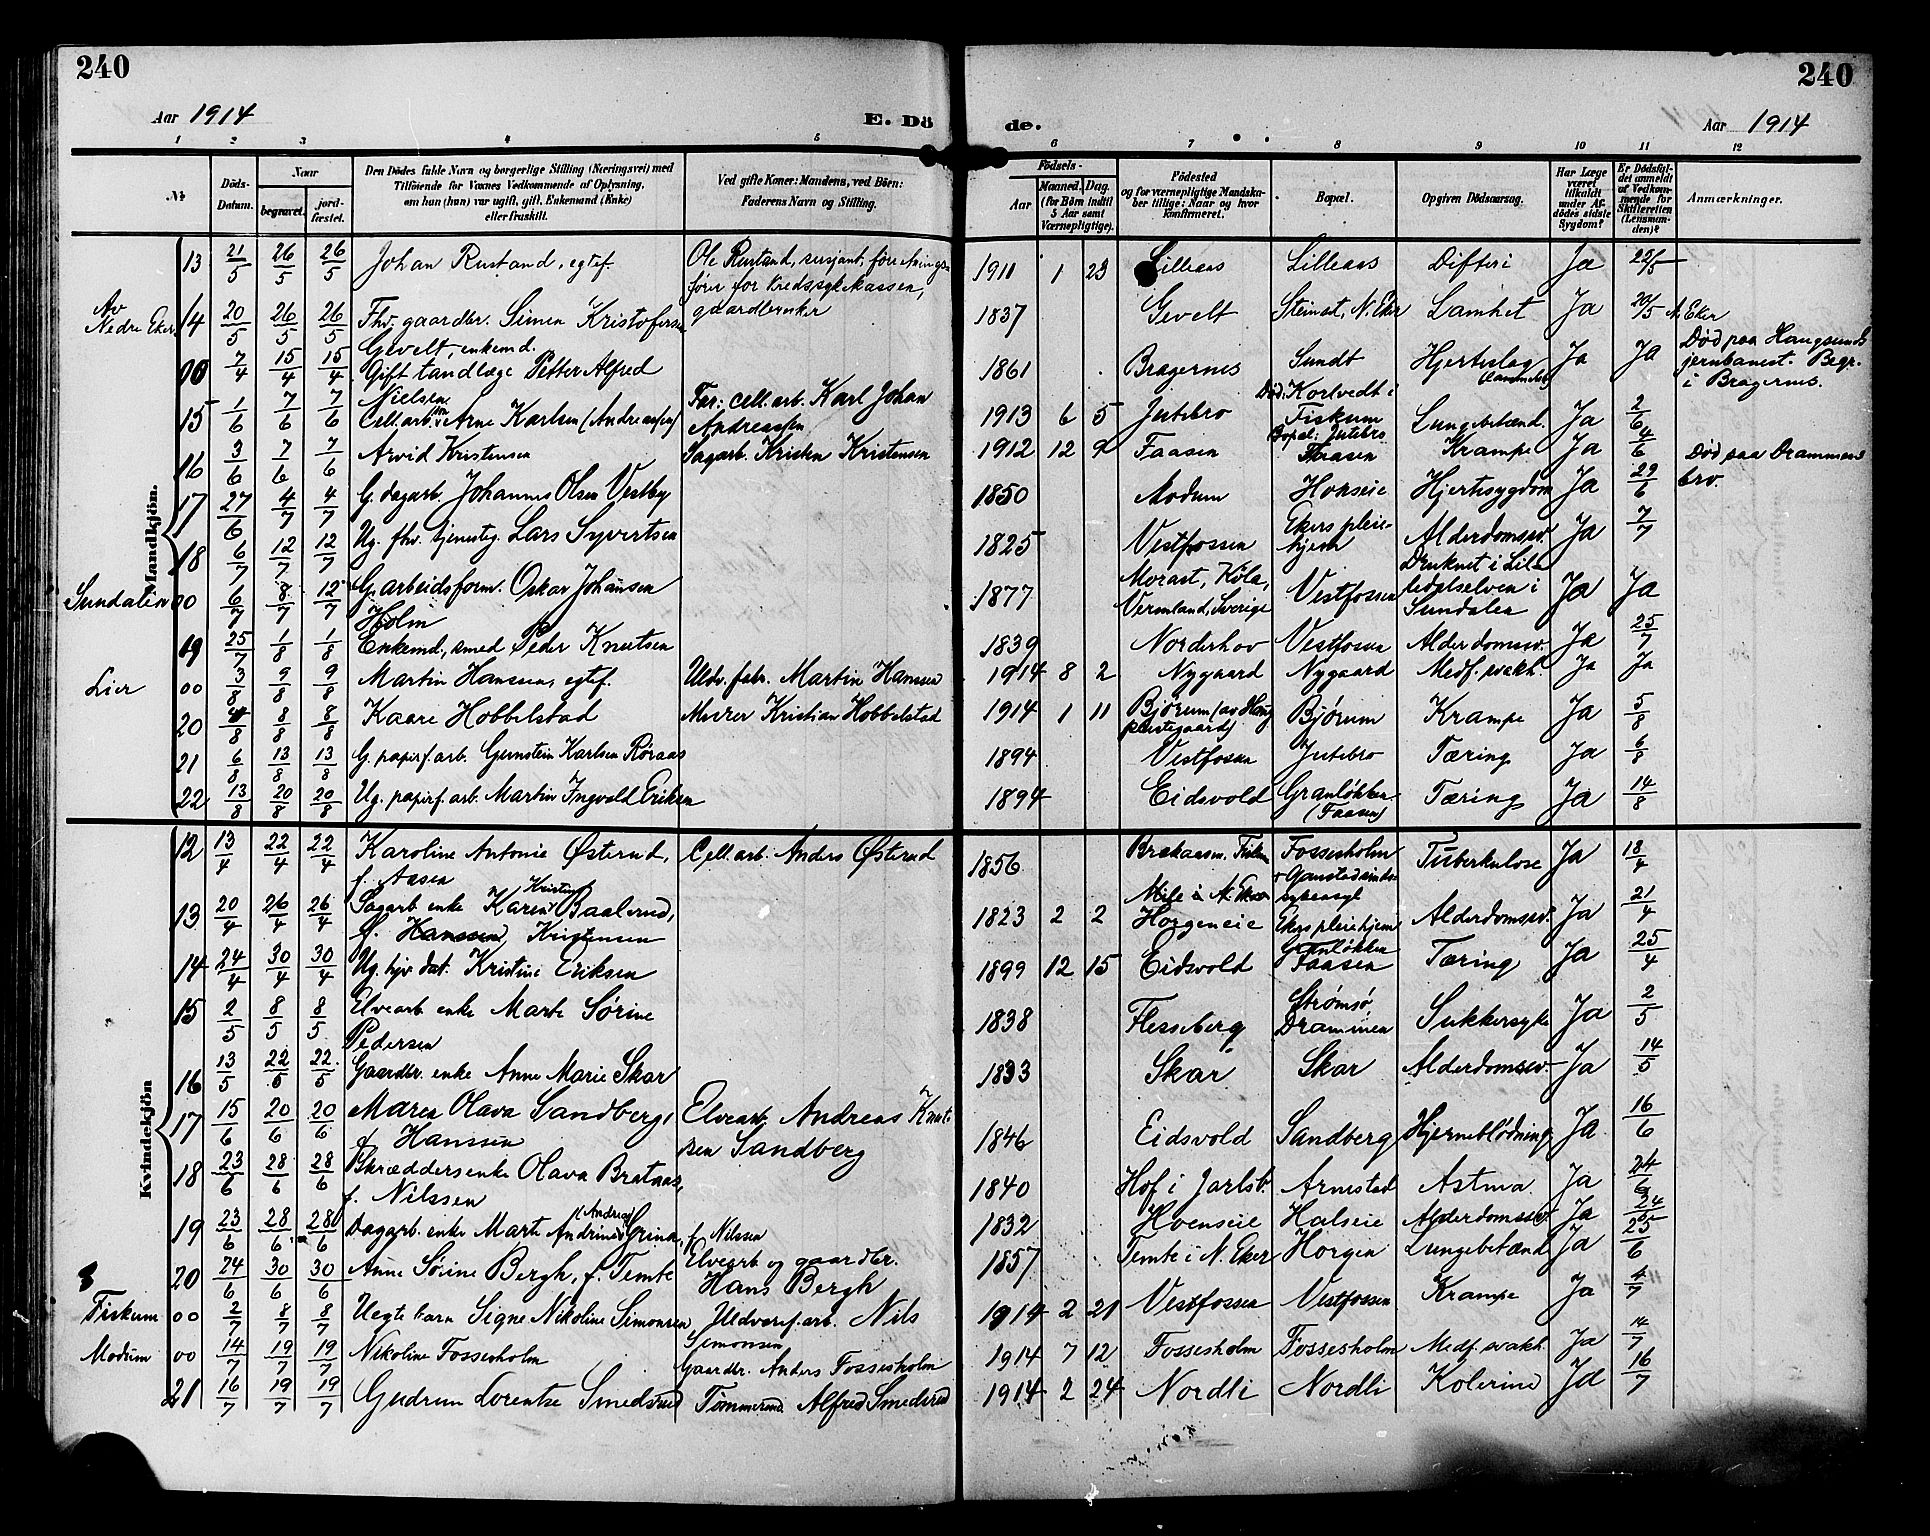 240
240
Aar 1914
E. Dö
de.
Aar 1914
1 2 3 4 5 6 7 8 9 10 11 12
№
Döds-Datum.
Naar
begravet.
jord-fæstet.
Den Dödes fulde Navn og borgerlige Stilling (Næringsvei) med
Tilföiende for Voxnes Vedkommende af Oplysning,
om han (hun) var ugift, gift, Enkemand (Enke)
eller fraskilt.
Ved gifte Koner: Mandens, ved Börn:
Faderens Navn og Stilling.
Födsels-
Aar
Maaned. Dag.
(for Börn indtil
5 Aar samt
Værnepligtige).
Födested
og for værnepligtige Mandska-
ber tillige: Naar og hvor
konfirmeret.
Bopæl.
Opgiven Dödsaarsag.
Har Læge
været
tilkaldt
under Af-
dödes sidste
Sygdom?
Er Dödsfal-
det anmeldt
af Vedkom-
mende for
Skifteretten
(Lensman-
den)?
Anmærkninger.
Mandkjön.
13 21/5 26/5 26/5 Johan Rustand, egtef. Ole Rustand, sersjant, forretnings- 1911 1 23 Lilleaas Lilleaas Difteri Ja 22/5
fører for Kredssykekassen,
gaardbruker
Av Nedre Eker 14 20/5 26/5 26/5 Fhv. gaardbr. Simen Kristofersen 1837 Gevelt Steinset, N. Eker Lamhet Ja 20/5 N. Eker
Gevelt, enkemd.
00 7/4 15/4 15/4 Gift tandlæge Petter Alfred 1861 Bragernes Sundt Hjerteslag Ja Ja Død paa Hougsund
Nielsen jernbanest. Begr.
i Bragernes.
15 1/6 7/6 7/6 Cell.arb. Arne Karlsen (Andreassen) Far: cell. arb. Karl Johan 1913 6 5 Jutebro Død: Kortvedt i Lungebetænd. Ja 2/6
Andreassen Fiskum
Bopæl: Jutebro
16 3/6 7/6 7/6 Arvid Kristensen Sagarb. Kristen Kristensen 1912 12 9 Faasen Faasen Krampe Ja 4/6 Død paa Drammens
bro.
17 27/6 4/7 4/7 G. dagarb. Johannes Olsen Vestby 1850 Modum Hokseie Hjertesygdom Ja 29/6
18 6/7 12/7 12/7 Ug. fhv. tjenesteg. Lars Syvertsen 1825 Vestfossen Ekers pleie- Alderdomssv. Ja 7/7
hjem
Sundalen 00 6/7 8/7 12/7 G. arbeidsform. Oskar Johansen 1877 Morast, Köla, Vestfossen Druknet i Lil- Ja Ja
Holm Vermland, Sverige ledelselven i
Sundalen
19 25/7 1/8 1/8 Enkemd., smed Peder Knutsen 1839 Norderhov Vestfossen Alderdomssv. Ja 25/7
Lier 00 3/8 9/8 9/8 Martin Hanssen, egtef. Uldv. fabr. Martin Hanssen 1914 8 2 Nygaard Nygaard Medf. svakh. Ja Ja
20 4/8 8/8 8/8 Kaare Hobbelstad Murer Kristian Hobbelstad 1914 1 11 Bjørum (av Haug Bjørum Krampe Ja 5/8
prestegaard)
21 6/8 13/8 13/8 G. papirf. arb. Gunstein Karlsen Røraas 1894 Vestfossen Jutebro Tæring Ja 6/8
22 13/8 20/8 20/8 Ug. papirf. arb. Martin Ingvold Eriksen 1894 Eidsvold Granløkken Tæring Ja 14/8
(Faasen)
Kvindekjön
12 13/4 22/4 22/4 Karoline Antonie Østerud, Cell. arb. Anders Østerud 1856 Brekaasen, Fiskum Fossesholm Tuberkulose Ja 18/4
f. Aasen
13 20/4 26/4 26/4 Sagarb. enke Karen Kristine Baalerud, 1823 2 2 Mile i N. Eker Ekers pleiehjem Alderdomssv. Ja 21/4
f. Hanssen, Kristensen Horgeneie
14 24/4 30/4 30/4 Ug. hjv. dat. Kristine Eriksen 1899 12 15 Eidsvold Granløkken Tæring Ja 25/4
Faasen
15 2/5 8/5 8/5 Elvearb. enke Marte Sørine 1838 Flesseberg Strømsø, Sukkersyke Ja 2/5
Pedersen Drammen
16 13/5 22/5 22/5 Gaardbr. enke Anne Marie Skar 1833 Skar Skar Alderdomssv. Ja 14/5
17 15/6 20/6 20/6 Maren Olava Sandberg, Elvearb. Andreas Knut- 1846 Eidsvold Sandberg Hjerneblödning Ja 16/6
f. Hanssen sen Sandberg
18 23/6 28/6 28/6 Skræddersenke Olava Brataas, 1840 Hof i Jarlsb. Armstad Astma Ja 24/6
f. Nilssen
19 23/6 28/6 28/6 Dagarb. enke Marte Andrine (Andrea) Grina, f. Nilssen 1832 Hoenseie Halseie Alderdomssv. Ja 24/6
20 24/6 30/6 30/6 Anne Sørine Bergh, f. Temte Elvearb. og gaardbr. 1857 Temte i N. Eker Horgen Lungebetænd. Ja 25/6
Hans Bergh
Fiskum 00 2/7 8/7 8/7 Uegte barn Signe Nikoline Simonsen Uldvaref. arb. Nils 1914 2 21 Vestfossen Vestfossen Krampe Ja 4/7
Simonsen
Modum 00 14/7 19/7 19/7 Nikoline Fossesholm Gaardbr. Anders Fossesholm 1914 7 12 Fossesholm Fossesholm Medf. svakh. Ja 14/7
21 16/7 19/7 19/7 Gudrun Lorentze Smedsrud Tømmermd. Alfred Smedsrud 1914 2 24 Nordli Nordli Kolerine Ja 16/7